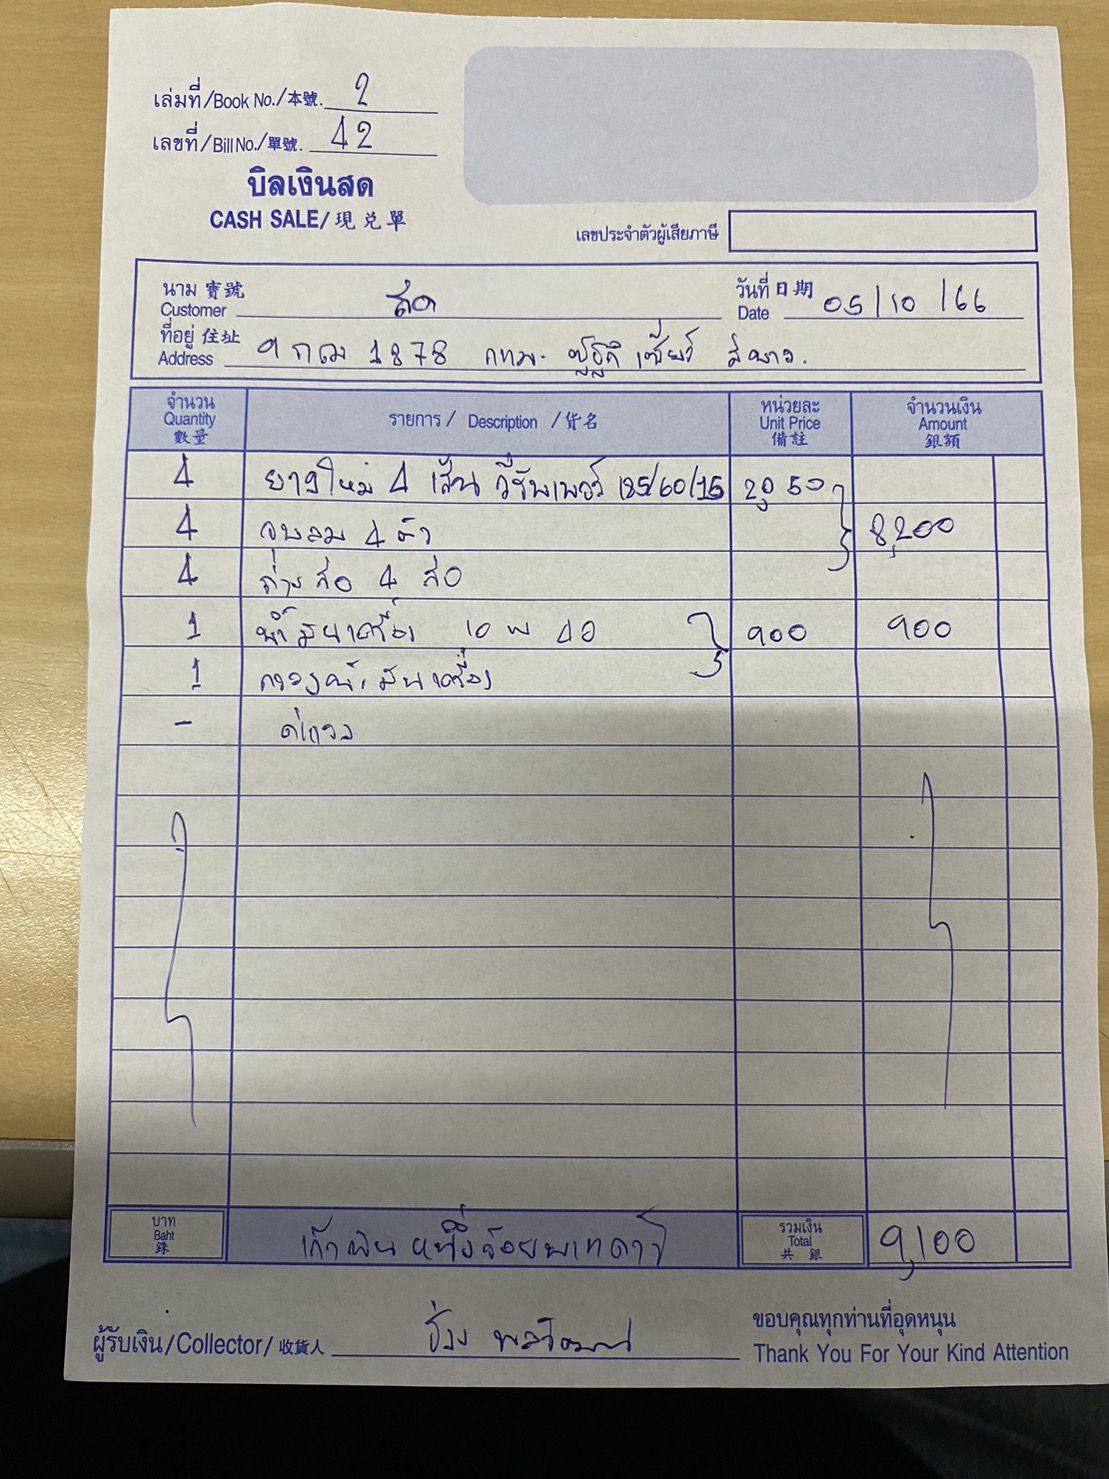 เล่มที่/Book No./本號. 2
เลขที่/Bill No./單號. 42
บิลเงินสด
CASH SALE/現兌單
เลขประจำตัวผู้เสียภาษี
นาม 寶號 Customer สด วันที่ 日期 Date 05/10/66
ที่อยู่ 住址 Address 1878 กทม. ซูซูกิ เซียร์ สีขาว.
จำนวน Quantity 數量 รายการ / Description / 貨名 หน่วยละ Unit Price 備註 จำนวนเงิน Amount 銀額
4 ยางใหม่ 4 เส้น วีรับเบอร์ 185/60/15 2,050
4 จุบลม 4 ตัว 8,200
4 ถ่วงล้อ 4 ล้อ
1 น้ำมันเครื่อง 10 W 40 900 900
1 กรองน้ำมันเครื่อง
-
บาท Baht 銖 เก้าพันหนึ่งร้อยบาทถ้วน รวมเงิน Total 共銀 9,100
ผู้รับเงิน/Collector/收貨人 ช่าง
ขอบคุณทุกท่านที่อุดหนุน
Thank You For Your Kind Attention